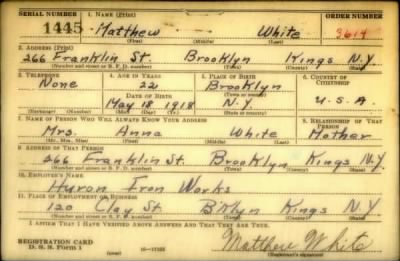 SERIAL NUMBER 1. NAME (Print) ORDER NUMBER
1445 Matthew - White 3614
(First) (Middle) (Last)
2. ADDRESS (Print)
266 Franklin St. Brooklyn Kings N.Y.
(Number and street or R. F. D. number) (Town) (County) (State)
3. TELEPHONE 4. AGE IN YEARS 5. PLACE OF BIRTH 6. COUNTRY OF CITIZENSHIP
None 22 Brooklyn
DATE OF BIRTH (Town or county)
May 18 1918 N.Y. U.S.A.
(Exchange) (Number) (Mo.) (Day) (Yr.) (State or country)
7. NAME OF PERSON WHO WILL ALWAYS KNOW YOUR ADDRESS 8. RELATIONSHIP OF THAT PERSON
Mrs. Anna White Mother
(Mr., Mrs., Miss) (First) (Middle) (Last)
9. ADDRESS OF THAT PERSON
266 Franklin St. Brooklyn Kings N.Y.
(Number and street or R. F. D. number) (Town) (County) (State)
10. EMPLOYER'S NAME
Huron Iron Works
11. PLACE OF EMPLOYMENT OR BUSINESS
120 Clay St. B'klyn Kings N.Y
(Number and street or R. F. D. number) (Town) (County) (State)
I AFFIRM THAT I HAVE VERIFIED ABOVE ANSWERS AND THAT THEY ARE TRUE.
REGISTRATION CARD
D. S. S. Form 1 (over) 16-17105 Matthew White
(Registrant's signature)